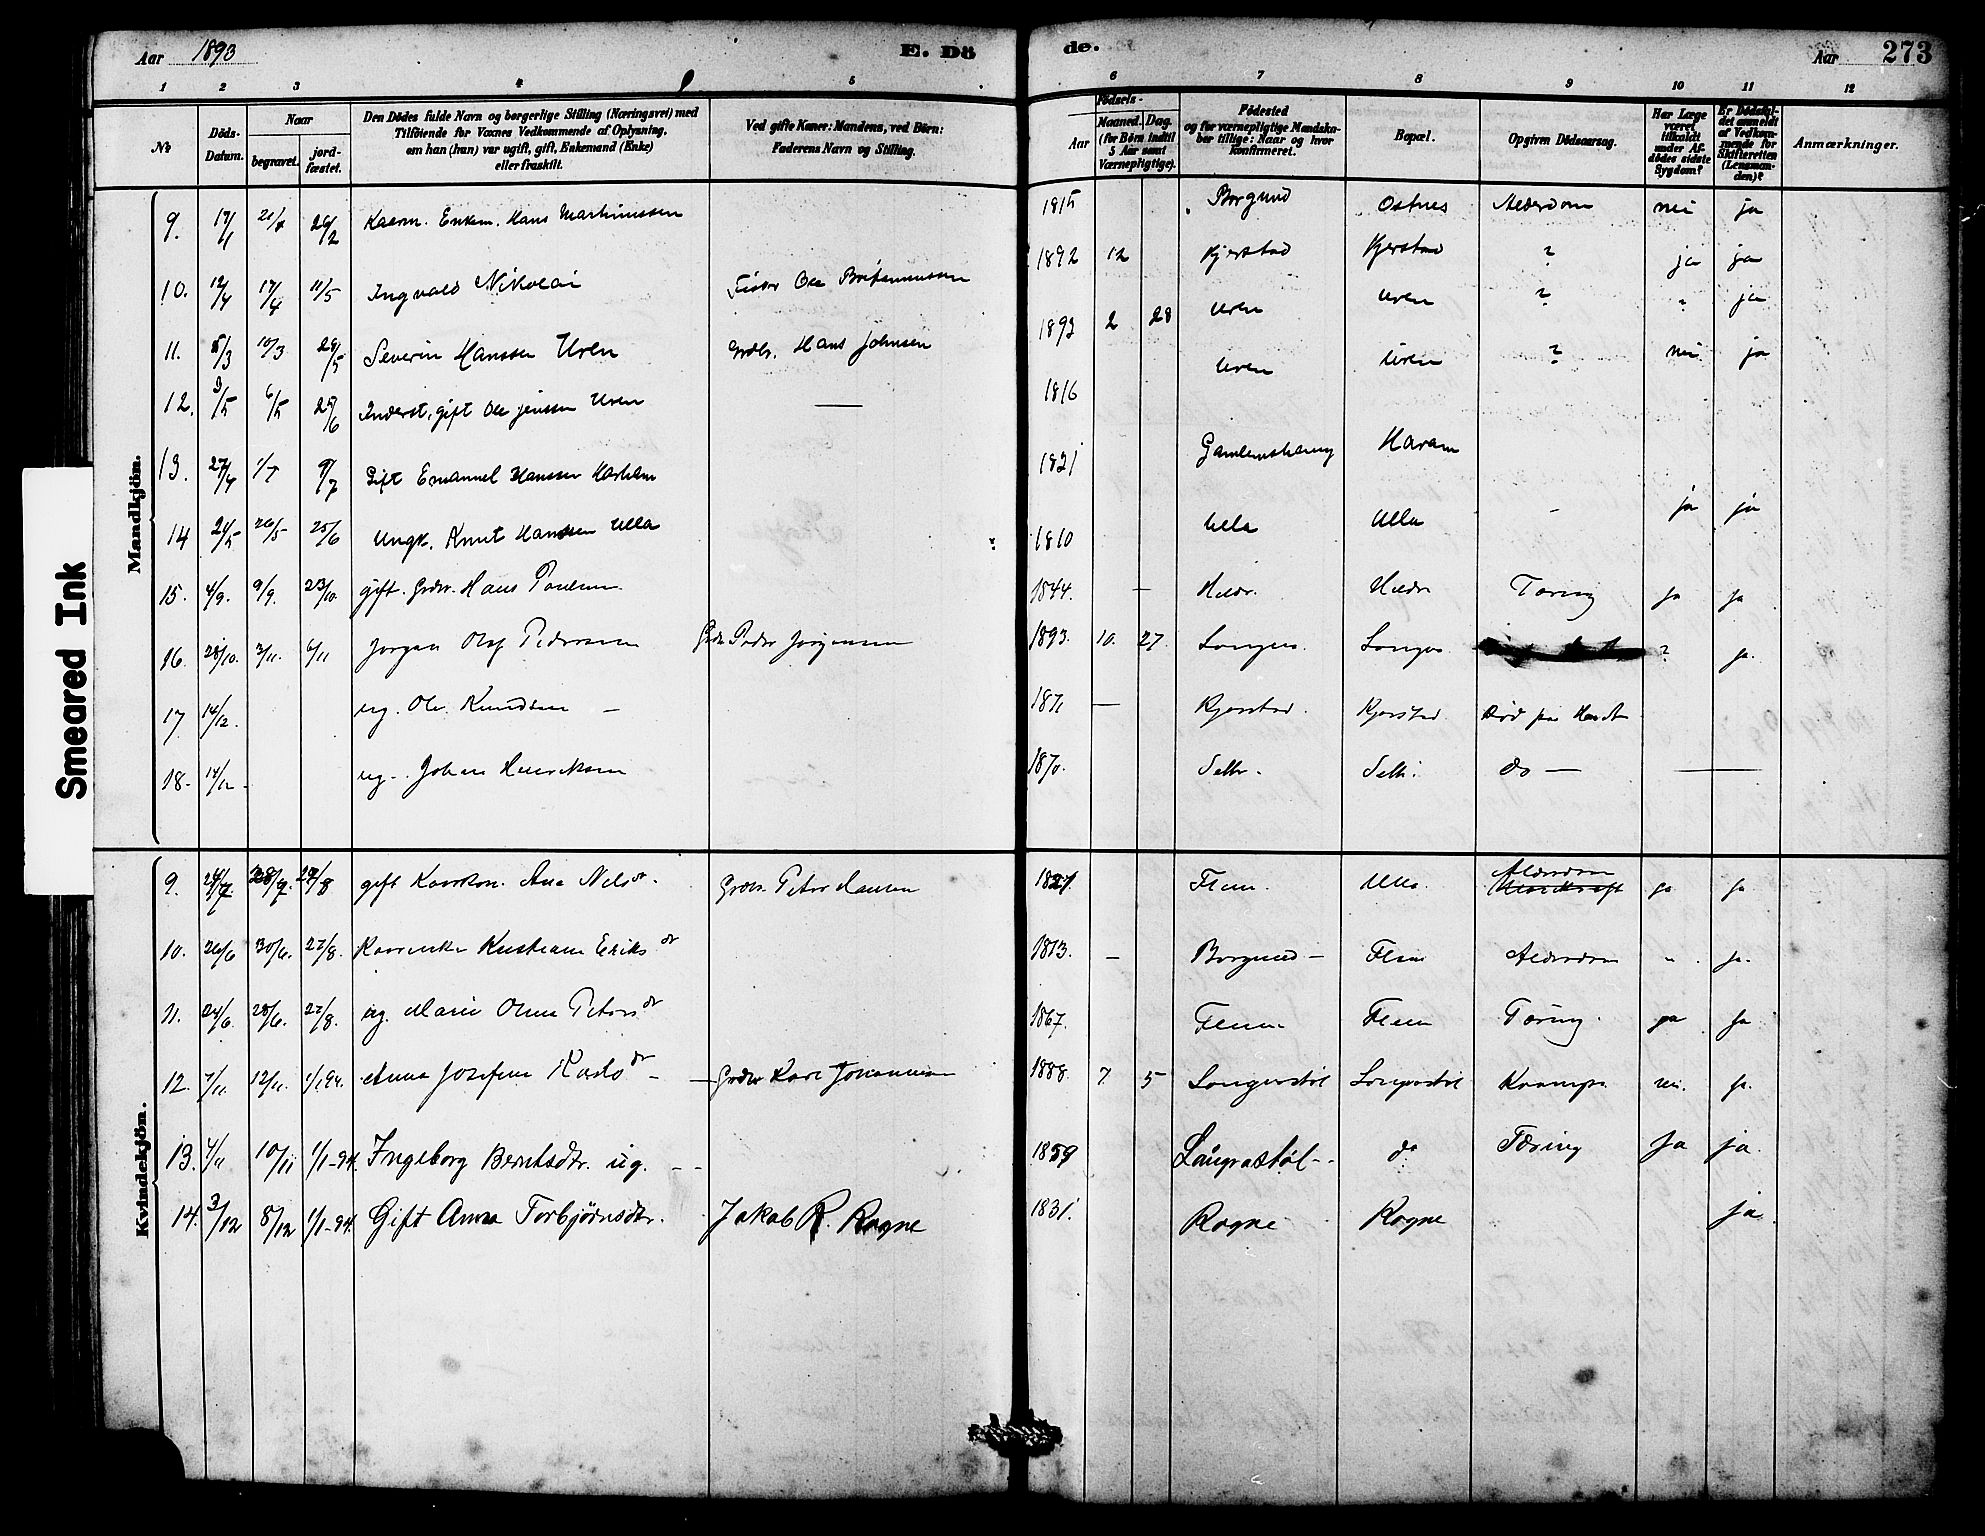 Aar 1893 E. Dö
de. Aar 273
1 2 3 4 5 6 7 8 9 10 11 12
No
Döds-Datum.
Naar
begravet.
jord-fæstet.
Den Dödes fulde Navn og borgerlige Stilling (Næringsvei) med
Tilföiende for Voxnes Vedkommende af Oplysning,
om han (hun) var ugift, gift, Enkemand (Enke)
eller fraskilt.
Ved gifte Koner: Mandens, ved Börn:
Faderens Navn og Stilling.
Födsels-
Aar
Maaned. Dag.
(for Börn indtil
5 Aar samt
Værnepligtige).
Födested
og for værnepligtige Mandska-
ber tillige: Naar og hvor
konfirmeret.
Bopæl.
Opgiven Dödsaarsag.
Har Læge
været
tilkaldt
under Af-
dödes sidste
Sygdom?
Er Dödsfal-
det anmeldt
af Vedkom-
mende for
Skifteretten
(Lensman-
den)?
Anmærkninger.
Smeared Ink
Mandkjön.
9. 17/1 21/1 26/2 Kaarm. Enkem. Hans Martinussen 1815 Borgund Ostnes Alderdom nei ja
10. 12/4 17/4 11/5 Ingvald Nikolai Fisker Ole 1892 12 Kjerstad Kjerstad ? ja ja
11. 5/3 10/3 28/5 Severin Hanssen Uren Grdbr. Hans Johnsen 1893 2 28 Uren Uren ? " ja
12. 3/5 6/5 25/6 Inderst, gift Ole Jenssen Uren — 1816 Uren Uren ? nei ja
13. 27/4 1/5 9/7 Gift Emanuel Hanssen 1821 Haram
14 21/5 26/5 25/6 Ungk. Knut Hanssen Ulla 1810 Ulla Ulla - ja ja
15. 4/9. 9/9. 23/10. gift. Grdbr. Hans Poulsen 1844. — Hildr. Hildr Tæring ja ja
16. 28/10. 2/11. 6/11 Jørgen Olaf Pedersen Grdbr Peder Jørgensen 1893. 10. 27. Longva. Longva ? ja
17 14/12. ug. Ole Knudsen — 1871 — Kjerstad. Kjerstad. Død paa Havet
18- 14/12 - ug. Johan Henriksen 1870. do —
Kvindekjön.
9. 24/7 28/7. 27/8 gift Kaarkon. Ane Nilsdr. Grdbr. Peter Hansen 1827. Flem. Ulla. Alderdom ja ja
10. 26/6 30/6. 27/8. Kaarenke Kristiane Eriksdr 1813. — Borgund — Flem Alderdom " ja.
11. 24/6. 28/6. 27/8. ug. Marie Oline Petersdr 1867. Flem Flem Tæring. ja ja
12. 7/11. 12/11. 1/1 94. Anna Josefine Karlsdr — Grdbr Karl Johannesen 1888. 7. 5 Longvastøl Longvastøl Krampe nei. ja.
13. 4/11 10/11 1/1-94. Ingeborg Berntsdtr. ug. - - 1859 Laugvastøl-. do Tæring ja ja.
14. 3/12 8/12 1/1-94 Gift Anna Torbjørnsdtr. Jakob R. Rogne 1831. Rogne Rogne ja